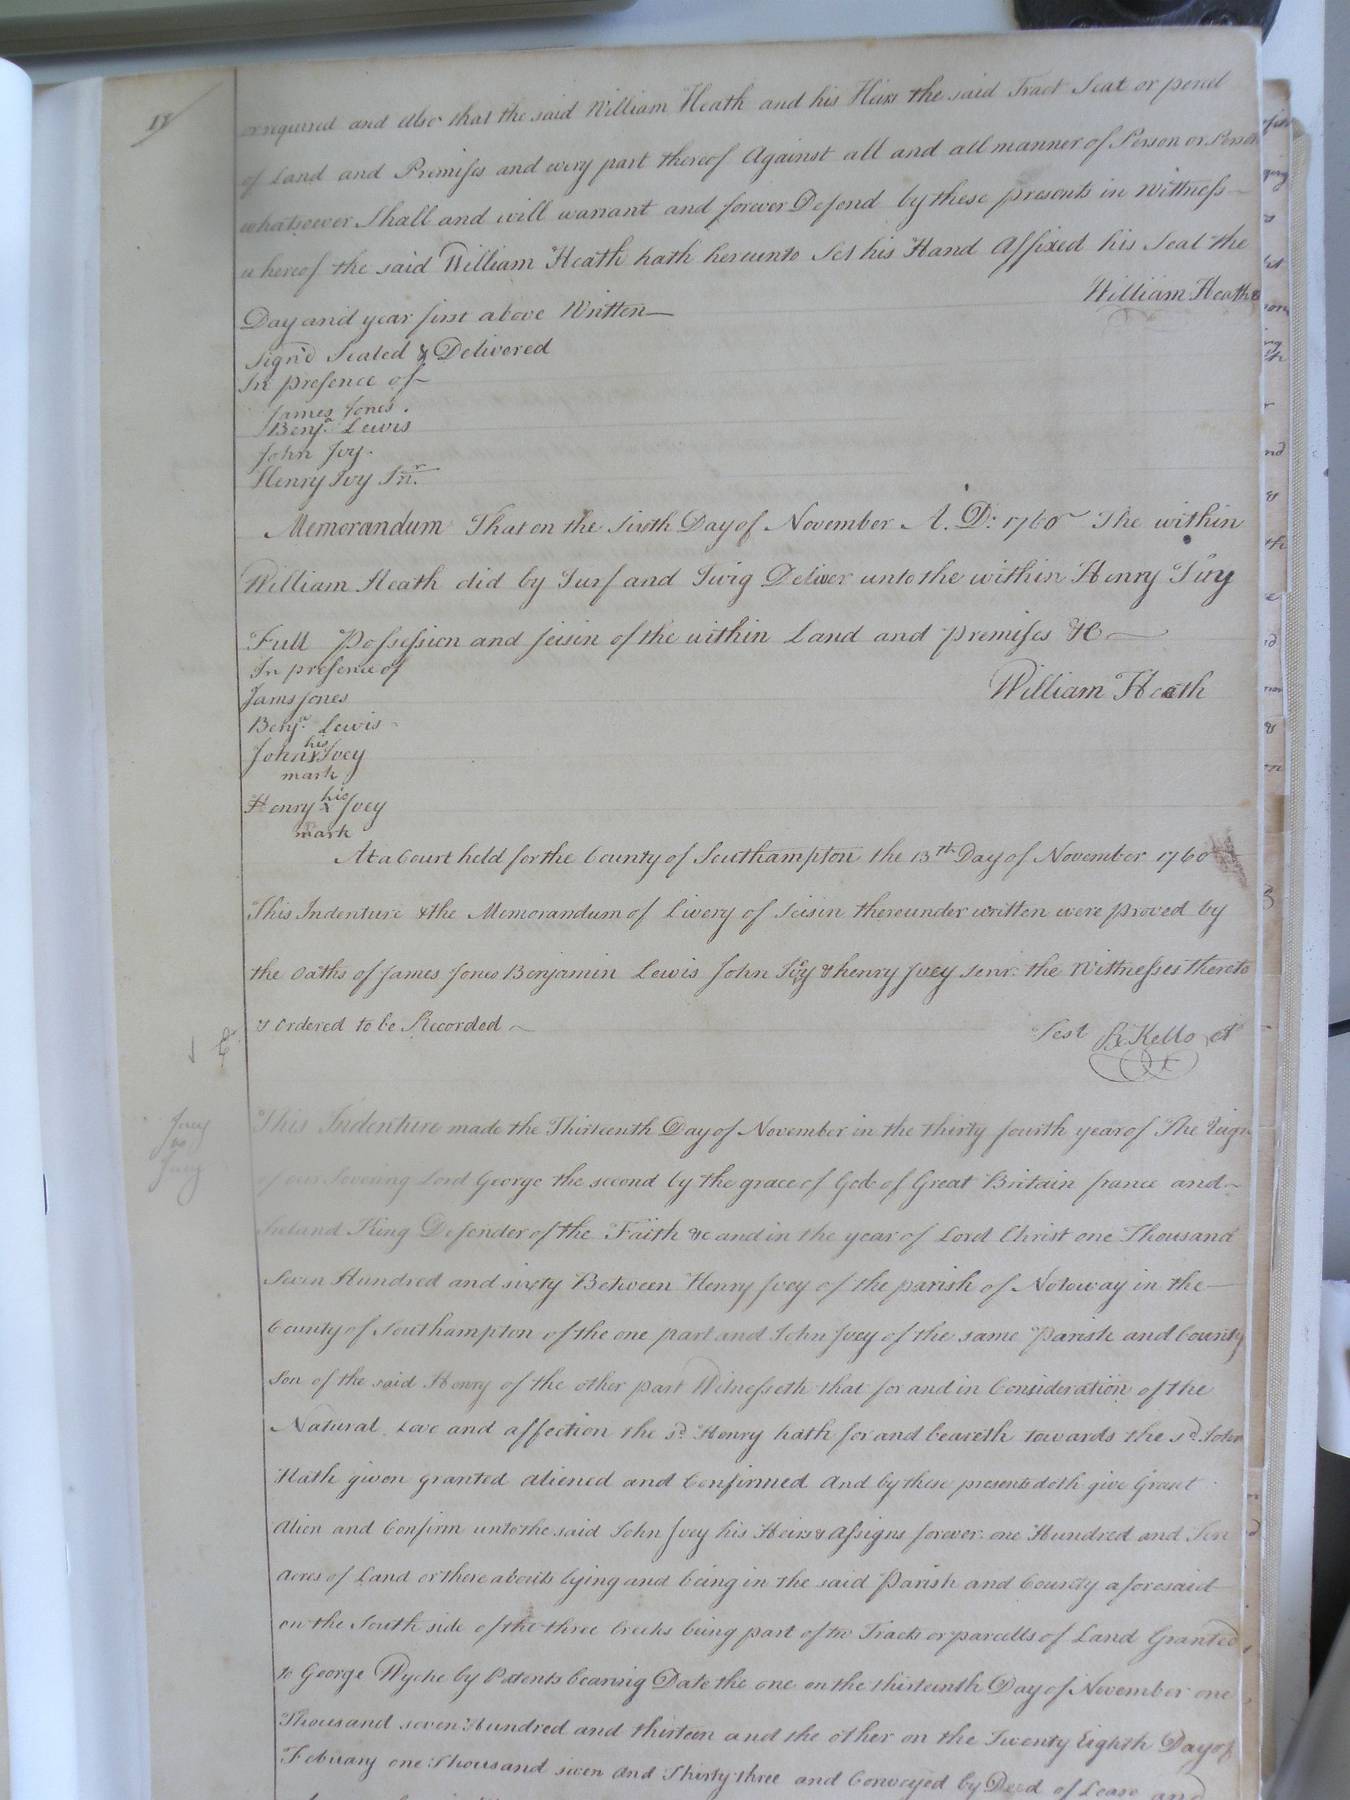 11
or required and also that the said William Heath and his Heirs the said Tract Seat or percel
of Land and Premises and every part thereof Against all and all manner of Person or Person
whatsoever Shall and will warrant and forever Defend by these presents in Wittness
whereof the said William Heath hath hereunto Set his Hand Affixed his Seal the
Day and year first above Written
William Heath
Sign'd Sealed & Delivered
In presence of
James Jones.
Benja. Lewis
John Ivy.
Henry Ivy Snr.
Memorandum That on the Sixth Day of November A. D: 1760 The within
William Heath did by Turf and Twig Deliver unto the within Henry Ivy
Full Possession and seisin of the within Land and premises &C
In presence of
William Heath
Jams Jones
Benja. Lewis
his
John x Ivey
mark
his
Henry x Ivey
mark
At a Court held for the County of Southampton the 13th Day of November 1760
This Indenture & the Memorandum of Livery of Seisin thereunder written were proved by
the oaths of James Jones Benjamin Lewis John Ivy & henry Ivey senr. the Wittnesses thereto
& ordered to be Recorded
Test Kello
Ivey
to
Ivey
This Indenture made the Thirteenth Day of November in the thirty fourth year of The Reign
of our Sovering Lord George the second by the grace of God of Great Britain france and
Ireland King Defender of the Faith &c and in the year of Lord Christ one Thousand
Seven Hundred and sixty Between Henry Ivey of the parish of Notoway in the
County of Southampton of the one part and John Ivey of the same Parish and County
Son of the said Henry of the other part Witnesseth that for and in Consideration of the
Natural Love and affection the sd. Henry hath for and beareth towards the sd. John
Hath given granted aliened and Confirmed And by these presents doth give Grant
Alien and Confirm unto the said John Ivey his Heirs & Assigns forever one Hundred and Ten
Acres of Land or there abouts lying and being in the said Parish and County aforesaid
on the South side of the three creeks being part of two Tracts or parcells of Land Granted
to George Wyche by Patents bearing Date the one on the thirteenth Day of November one
Thousand seven Hundred and thirteen and the other on the Twenty Eighth Day of
Febuary one Thousand seven and Thirty three and Conveyed by Deed of Lease and